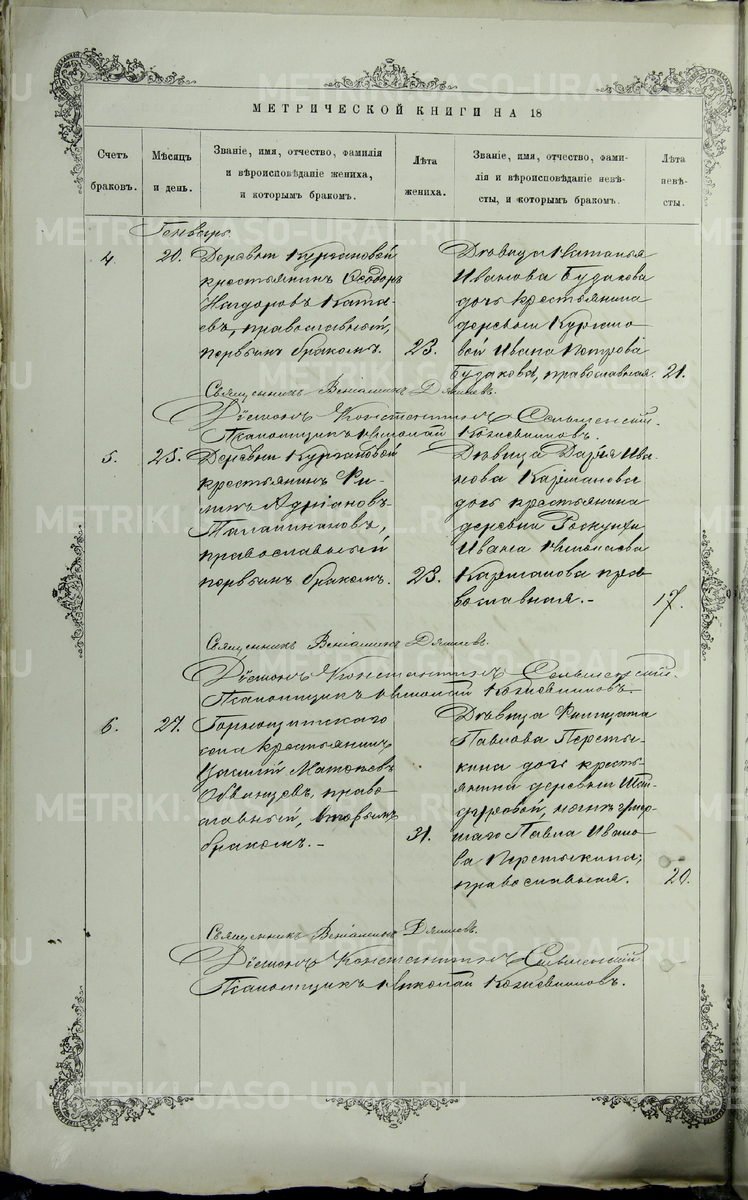 МЕТРИЧЕСКОЙ КНИГИ НА 18
Счетъ
браковъ.
Мѣсяцъ
и день.
Званіе, имя, отчество, фамилія
и вѣроисповѣданіе жениха,
и которымъ бракомъ.
Лѣта
жениха.
Званіе, имя, отчество, фами-
лія и вѣроисповѣданіе невѣ-
сты, и которымъ бракомъ.
Лѣта
невѣ-
сты.
Генварь.
4.
20.
Деревни Кургановой
крестьянинъ Ѳеодоръ
Ката-
евъ, православный,
первымъ бракомъ.
23.
Дѣвица Наталья
Иванова Будакова
дочь крестьянина
деревни Кургано-
вой Ивана Петрова
Будакова, православная.
21.
Священникъ Веніаминъ
Діаконъ Константинъ Сельменскій.
Псаломщикъ Николай Кожевниковъ.
5.
25.
Деревни Кургановой
крестьянинъ Фи-
липъ Адріановъ
православный
первымъ бракомъ.
23.
Дѣвица Дарья Ива-
нова Казманова
дочь крестьянина
деревни Раскуихи
Ивана Николаева
Казманова пра-
вославная.-
17.
Священникъ Веніаминъ
Діаконъ Константинъ Сельменскій.
Псаломщикъ Николай Кожевниковъ.
6.
27.
Горнощитскаго
села крестьянинъ
Матѳеевъ
Обвинцевъ, право-
славный, вторымъ
бракомъ.-
31.
Дѣвица
Павлова Персты-
кина дочь кресть-
янина деревни
умер-
шаго Павла Ивано-
ва Перстыкина,
православная.
20.
Священникъ Веніаминъ
Діаконъ Константинъ Сельменскій
Псаломщикъ Николай Кожевниковъ.
METRIKI.GASO-URAL.RU